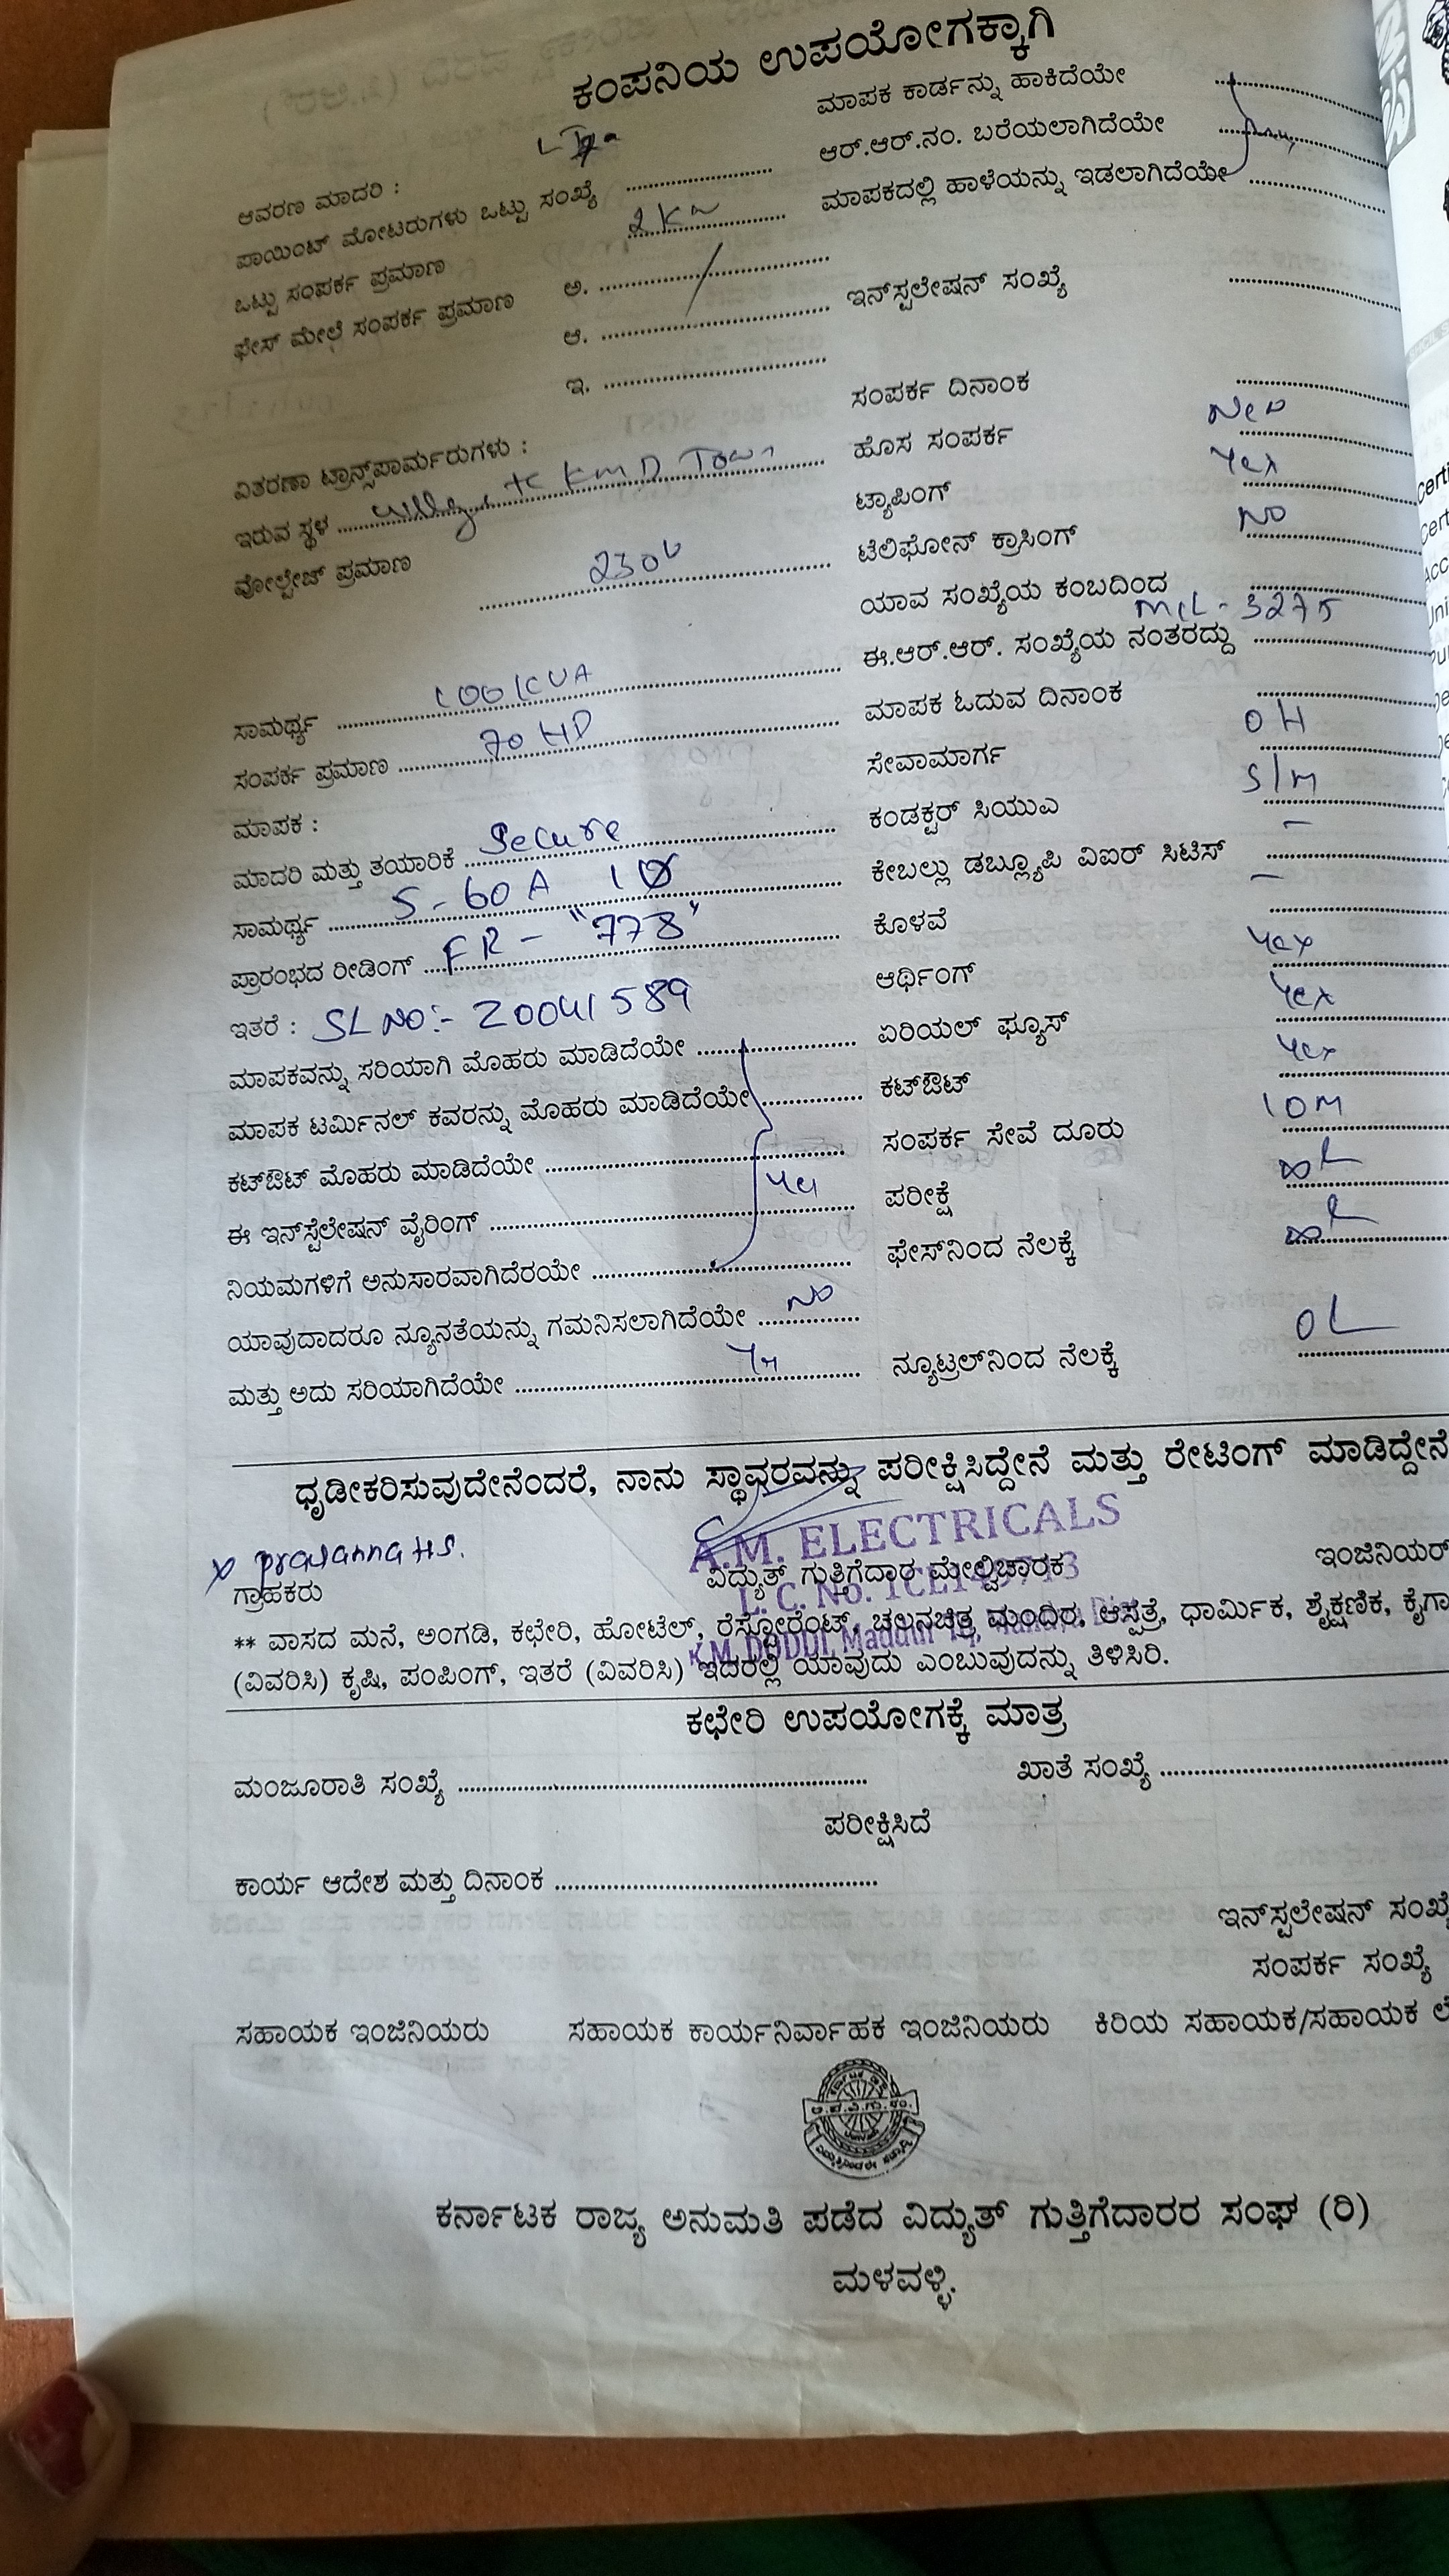 ಕಂಪನಿಯ ಉಪಯೋಗಕ್ಕಾಗಿ
ಆವರಣ ಮಾದರಿ :
ಪಾಯಿಂಟ್ ಮೋಟರುಗಳು ಒಟ್ಟು ಸಂಖ್ಯೆ ....................
ಒಟ್ಟು ಸಂಪರ್ಕ ಪ್ರಮಾಣ 2 Kw
ಫೇಸ್ ಮೇಲೆ ಸಂಪರ್ಕ ಪ್ರಮಾಣ ಅ. ....................
ಆ. ....................
ಇ. ....................
ವಿತರಣಾ ಟ್ರಾನ್ಸ್‌ಪಾರ್ಮರುಗಳು :
ಇರುವ ಸ್ಥಳ .................... KMD Town
ವೋಲ್ಟೇಜ್ ಪ್ರಮಾಣ 230V
ಸಾಮರ್ಥ್ಯ .................... 100 KVA
ಸಂಪರ್ಕ ಪ್ರಮಾಣ .................... 70 HP
ಮಾಪಕ :
ಮಾದರಿ ಮತ್ತು ತಯಾರಿಕೆ .................... Secure
ಸಾಮರ್ಥ್ಯ .................... 5-60A 1Ø
ಪ್ರಾರಂಭದ ರೀಡಿಂಗ್ .................... FR - "778"
ಇತರೆ : SL NO:- 20041589
ಮಾಪಕವನ್ನು ಸರಿಯಾಗಿ ಮೊಹರು ಮಾಡಿದೆಯೇ ....................
ಮಾಪಕ ಟರ್ಮಿನಲ್ ಕವರನ್ನು ಮೊಹರು ಮಾಡಿದೆಯೇ ....................
ಕಟ್‌ಔಟ್ ಮೊಹರು ಮಾಡಿದೆಯೇ ....................
ಈ ಇನ್‌ಸ್ಟೆಲೇಷನ್ ವೈರಿಂಗ್ .................... Yes
ನಿಯಮಗಳಿಗೆ ಅನುಸಾರವಾಗಿದೆರಯೇ ....................
ಯಾವುದಾದರೂ ನ್ಯೂನತೆಯನ್ನು ಗಮನಿಸಲಾಗಿದೆಯೇ .................... NO
ಮತ್ತು ಅದು ಸರಿಯಾಗಿದೆಯೇ ....................
ಮಾಪಕ ಕಾರ್ಡನ್ನು ಹಾಕಿದೆಯೇ ....................
ಆರ್.ಆರ್.ನಂ. ಬರೆಯಲಾಗಿದೆಯೇ ....................
ಮಾಪಕದಲ್ಲಿ ಹಾಳೆಯನ್ನು ಇಡಲಾಗಿದೆಯೇ ....................
ಇನ್‌ಸ್ಪಲೇಷನ್ ಸಂಖ್ಯೆ ....................
ಸಂಪರ್ಕ ದಿನಾಂಕ ....................
ಹೊಸ ಸಂಪರ್ಕ New
ಟ್ಯಾಪಿಂಗ್ Yes
ಟೆಲಿಫೋನ್ ಕ್ರಾಸಿಂಗ್ NO
ಯಾವ ಸಂಖ್ಯೆಯ ಕಂಬದಿಂದ ....................
ಈ.ಆರ್.ಆರ್. ಸಂಖ್ಯೆಯ ನಂತರದ್ದು MCL-3275
ಮಾಪಕ ಓದುವ ದಿನಾಂಕ ....................
ಸೇವಾಮಾರ್ಗ OH
ಕಂಡಕ್ಟರ್ ಸಿಯುಎ S/M
ಕೇಬಲ್ಲು ಡಬ್ಲ್ಯೂಪಿ ವಿಐರ್ ಸಿಟಿಸ್ –
ಕೊಳವೆ –
ಆರ್ಥಿಂಗ್ Yes
ಏರಿಯಲ್ ಫ್ಯೂಸ್ Yes
ಕಟ್‌ಔಟ್ Yes
ಸಂಪರ್ಕ ಸೇವೆ ದೂರು 10M
ಪರೀಕ್ಷೆ
ಫೇಸ್‌ನಿಂದ ನೆಲಕ್ಕೆ
ನ್ಯೂಟ್ರಲ್‌ನಿಂದ ನೆಲಕ್ಕೆ
ಧೃಡೀಕರಿಸುವುದೇನೆಂದರೆ, ನಾನು ಸ್ಥಾವರವನ್ನು ಪರೀಕ್ಷಿಸಿದ್ದೇನೆ ಮತ್ತು ರೇಟಿಂಗ್ ಮಾಡಿದ್ದೇನೆ
A.M. ELECTRICALS
ಗ್ರಾಹಕರು ವಿದ್ಯುತ್ ಗುತ್ತಿಗೆದಾರ ಮೇಲ್ವಿಚಾರಕ ಇಂಜಿನಿಯರ್
L. C. No.
K.M. DODDI, Maddur
** ವಾಸದ ಮನೆ, ಅಂಗಡಿ, ಕಛೇರಿ, ಹೋಟೆಲ್, ರೆಸ್ಟೋರೆಂಟ್, ಚಲನಚಿತ್ರ ಮಂದಿರ, ಆಸ್ಪತ್ರೆ, ಧಾರ್ಮಿಕ, ಶೈಕ್ಷಣಿಕ, ಕೈಗಾ
(ವಿವರಿಸಿ) ಕೃಷಿ, ಪಂಪಿಂಗ್, ಇತರೆ (ವಿವರಿಸಿ) ಇದರಲ್ಲಿ ಯಾವುದು ಎಂಬುವುದನ್ನು ತಿಳಿಸಿರಿ.
ಕಛೇರಿ ಉಪಯೋಗಕ್ಕೆ ಮಾತ್ರ
ಮಂಜೂರಾತಿ ಸಂಖ್ಯೆ .................... ಖಾತೆ ಸಂಖ್ಯೆ ....................
ಪರೀಕ್ಷಿಸಿದೆ
ಕಾರ್ಯ ಆದೇಶ ಮತ್ತು ದಿನಾಂಕ ....................
ಇನ್‌ಸ್ಪಲೇಷನ್ ಸಂಖ್ಯೆ
ಸಂಪರ್ಕ ಸಂಖ್ಯೆ
ಸಹಾಯಕ ಇಂಜಿನಿಯರು ಸಹಾಯಕ ಕಾರ್ಯನಿರ್ವಾಹಕ ಇಂಜಿನಿಯರು ಕಿರಿಯ ಸಹಾಯಕ/ಸಹಾಯಕ ಲೆ
ಕರ್ನಾಟಕ ರಾಜ್ಯ ಅನುಮತಿ ಪಡೆದ ವಿದ್ಯುತ್ ಗುತ್ತಿಗೆದಾರರ ಸಂಘ (ರಿ)
ಮಳವಳ್ಳಿ.